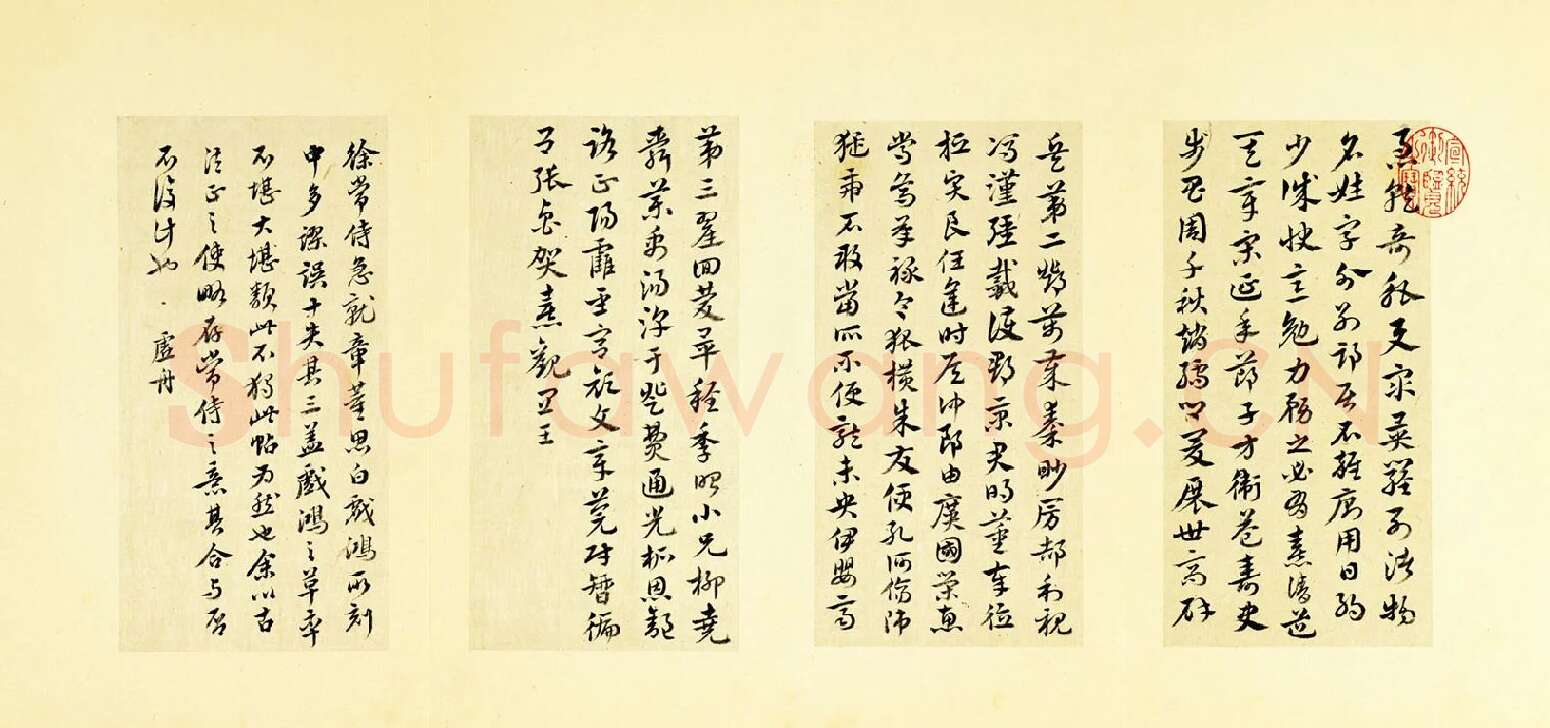 急就奇觚與眾異羅列諸物
名姓字分別部居不雜廁用日約
少誠快意勉力務之必有憙請道
其章宋延年鄭子方衛益壽史
步昌周千秋趙孺卿爰展世高辟
兵第二鄧萬歲秦眇房郝利親
馮漢彊戴護郡景君明董奉德
桓賢良任逢時侯仲郎由廣國榮惠
常烏承祿令狐橫朱交便孔何傷師
猛虎石敢當所不便龍未央伊嬰齊
第三翟回慶畢稚季昭小兄柳堯
舜藥禹湯淳于登費通光柘恩舒
路正陽霍聖宮顏文章莞財智徧
呂張魯賀憙觀宜王
徐常侍急就章董思白戲鴻所刻
中多謬誤十失其三蓋戲鴻之草率
不堪大堪類此不獨此帖為然也余以古
法正之使略存常侍之意其合与否
不復計也 虛舟
宣統御覽之寶
Shufawang.CN